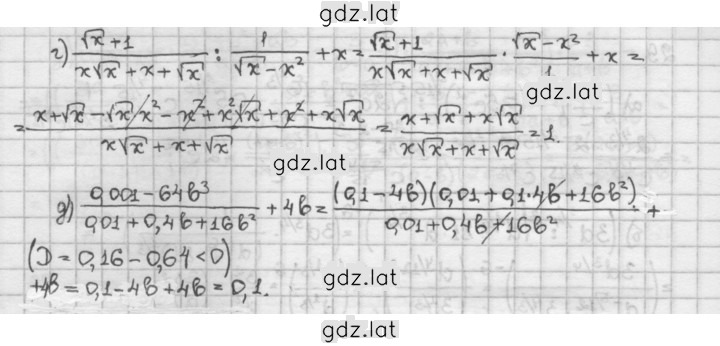 gdz.lat
г) (√x + 1)/(x√x + x + √x) : 1/(√x − x²) + x = (√x + 1)/(x√x + x + √x) · (√x − x²)/1 + x =
gdz.lat
= (x + √x − √x x² − x² + x²√x + x² + x√x)/(x√x + x + √x) = (x + √x + x√x)/(x√x + x + √x) = 1.
gdz.lat
д) (0,001 − 64b³)/(0,01 + 0,4b + 16b²) + 4b = (0,1 − 4b)(0,01 + 0,1·4b + 16b²)/(0,01 + 0,4b + 16b²) +
(D = 0,16 − 0,64 < 0)
gdz.lat
+4b = 0,1 − 4b + 4b = 0,1.
gdz.lat